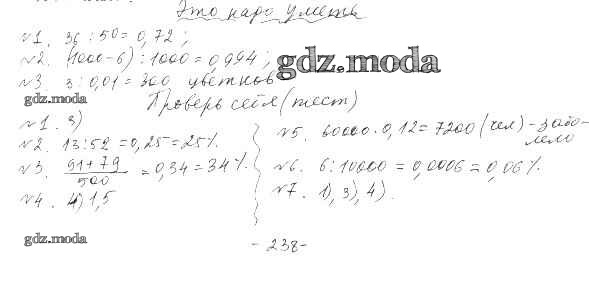 Это надо уметь
№1. 36 : 50 = 0,72;
№2. (1000-6) : 1000 = 0,994;
gdz.moda
№3 3 : 0,01 = 300 цветков
gdz.moda
Проверь себя (тест)
№1. 3)
№2. 13:52 = 0,25 = 25%.
№3. 91+79/500 = 0,34 = 34%.
№4. 4) 1,5
№5. 60000 · 0,12 = 7200 (чел) - забо-
лело
№6. 6:10000 = 0,0006 = 0,06%.
№7. 1), 3), 4).
gdz.moda
- 238 -